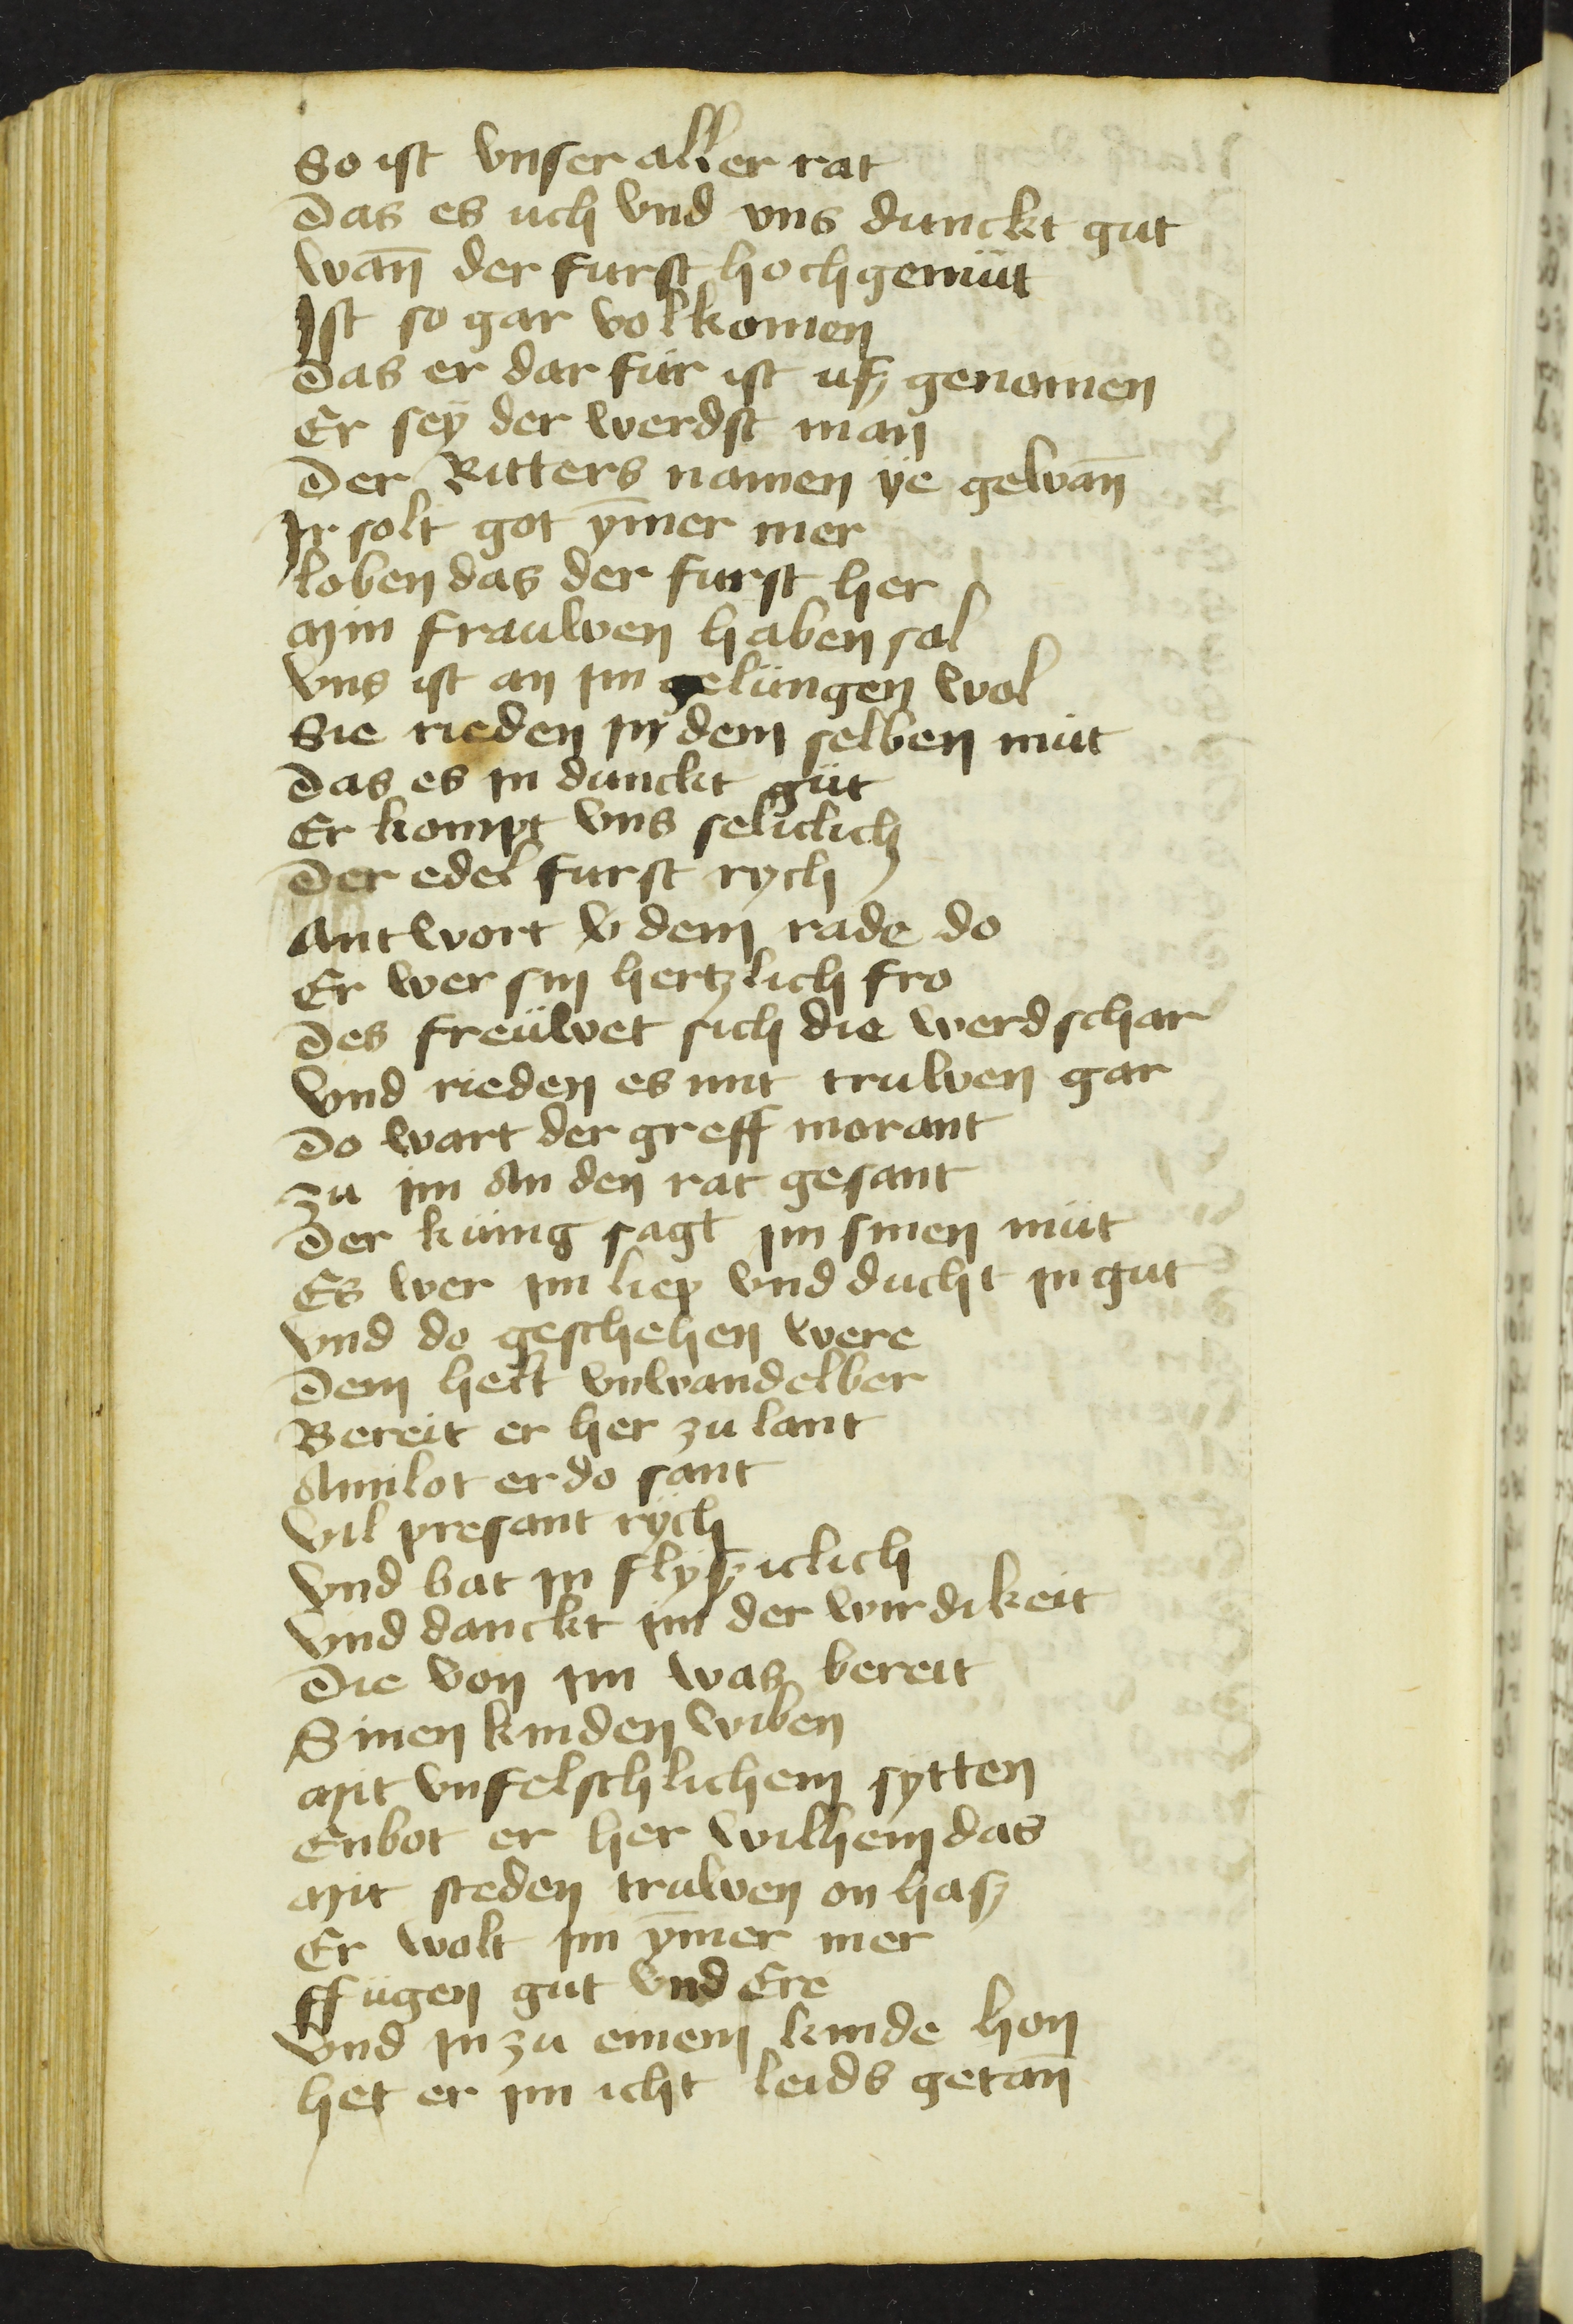 So ist vnser aller rat
Das es uch vnd vns dunckt gut
wan̄ der furst hochgemüt
Ist so gar volkomen
Das er dar für ist ufz genomen
Er sey der werdst man
Der Ritters namen ÿe gewan̄
Ir solt got ȳmer mer
loben das der furst her
Min frauwen haben sal
vns ist an im gelüngen wol
Sie rieden in dem selben müt
Das es in dunckt güt
Er kompt vns seliclich
Der edel furst rych
Antwort v dem rade do
Er wer sin hertzlich fro
Des freüwet sich die werd schar
vnd rieden es mit truwen gar
Do wart der greff morant
zu im An den rat gesant
Der künig sagt im sinen müt
Es wer im liep vnd ducht in gut
vnd do geschehen were
Dem helt vnwandelber
Bereit er her zu lant
Amilot er do sant
vil presant rÿch
vnd bat in flyfziclich
vnd danckt im der wirdikeit
Die von im was bereit
Sinen kinden wiben
Mit vnfelschlichem sytten
Enbot er her wilhem das
Mit steden truwen on hasz
Er wolt im ȳmer mer
ffügen gut vnd Ere
vnd in zu einem kinde hon
het er im icht leids getan̄